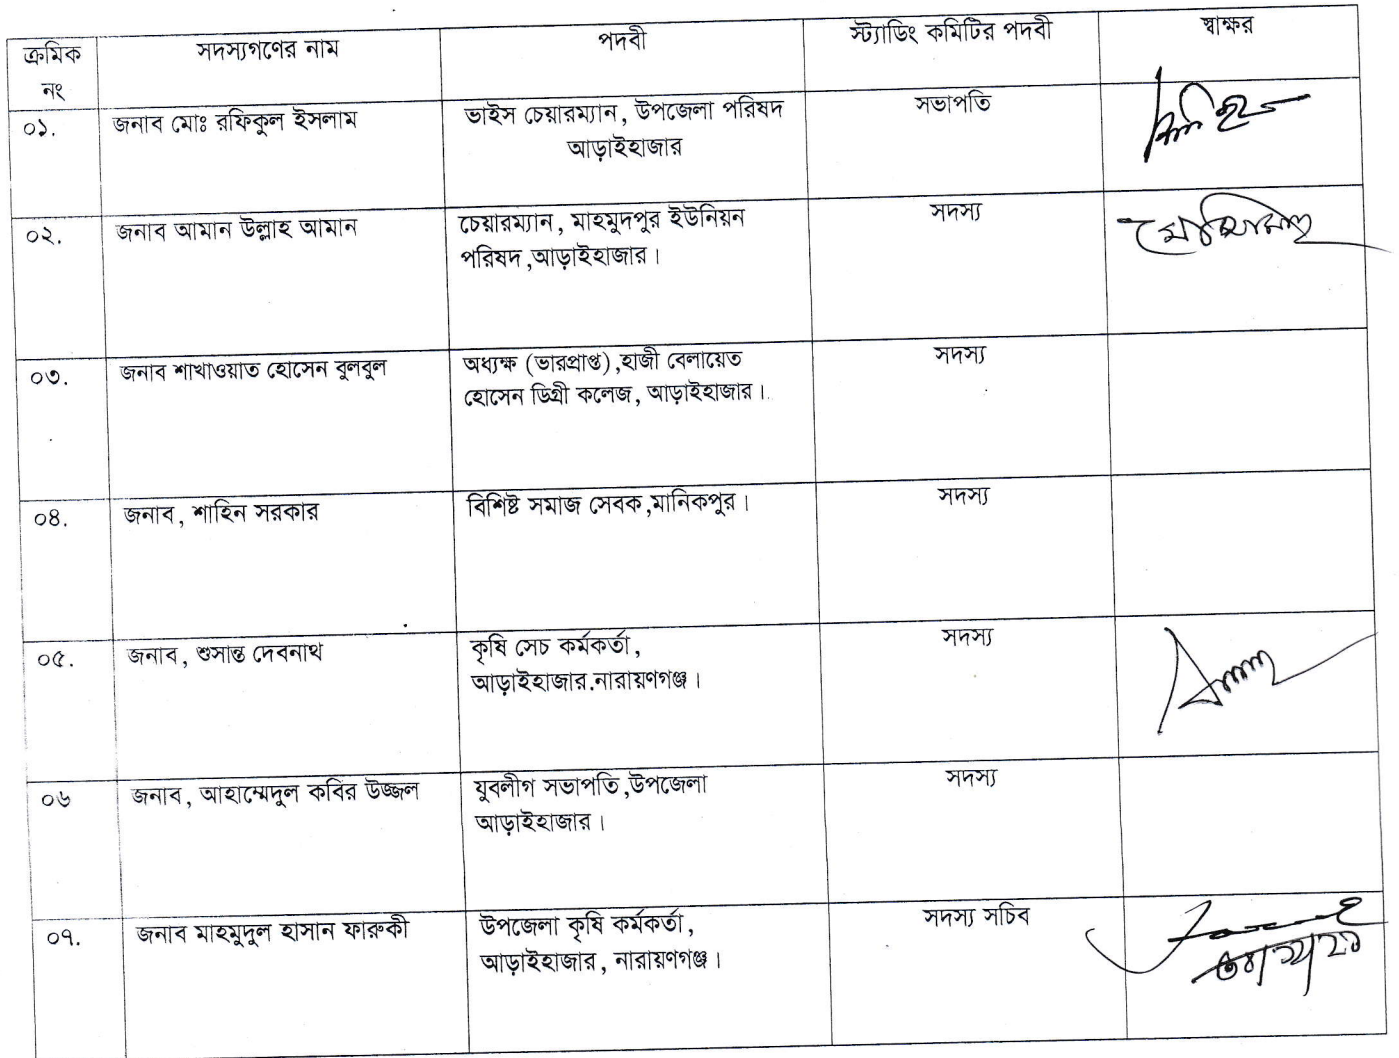 ক্রমিক নং	সদস্যগণের নাম	পদবী	স্ট্যাডিং কমিটির পদবী	স্বাক্ষর
০১.	জনাব মোঃ রফিকুল ইসলাম	ভাইস চেয়ারম্যান, উপজেলা পরিষদ
আড়াইহাজার	সভাপতি
০২.	জনাব আমান উল্লাহ আমান	চেয়ারম্যান, মাহমুদপুর ইউনিয়ন
পরিষদ,আড়াইহাজার।	সদস্য
০৩.	জনাব শাখাওয়াত হোসেন বুলবুল	অধ্যক্ষ (ভারপ্রাপ্ত),হাজী বেলায়েত
হোসেন ডিগ্রী কলেজ, আড়াইহাজার।	সদস্য
০৪.	জনাব, শাহিন সরকার	বিশিষ্ট সমাজ সেবক,মানিকপুর।	সদস্য
০৫.	জনাব, শুসান্ত দেবনাথ	কৃষি সেচ কর্মকর্তা,
আড়াইহাজার.নারায়ণগঞ্জ।	সদস্য
০৬	জনাব, আহাম্মেদুল কবির উজ্জল	যুবলীগ সভাপতি,উপজেলা
আড়াইহাজার।	সদস্য
০৭.	জনাব মাহমুদুল হাসান ফারুকী	উপজেলা কৃষি কর্মকর্তা,
আড়াইহাজার, নারায়ণগঞ্জ।	সদস্য সচিব